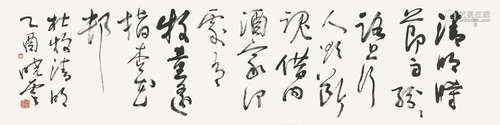 清明時
節雨紛紛
路上行
人欲斷
魂借問
酒家何
處有
牧童遙
指杏花
村
杜牧清明
乙酉曉雲